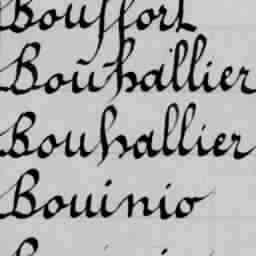 Bouffort
Bouhallier
Bouhallier
Bouinio